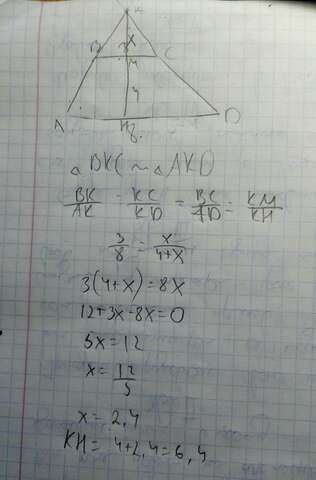 K
B 3 x C
M
4
A H 8. D
△BKC ~ △AKD
BK/AK = KC/KD = BC/AD = KM/KH
3/8 = x/4+x
3(4+x)=8x
12+3x-8x=0
5x=12
x=12/5
x=2,4
KH= 4+2,4=6,4